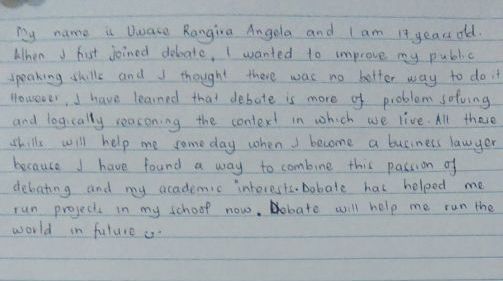 My name is Uwase Rangira Angela and I am 17 years old.
When I first joined debate, I wanted to improve my public
speaking skills and I thought there was no better way to do it
However, I have learned that debate is more of problem solving
and logically reasoning the context in which we live. All these
skills will help me some day when I become a business lawyer
because I have found a way to combine this passion of
debating and my academic interests. Debate has helped me
run projects in my school now. Debate will help me run the
world in future